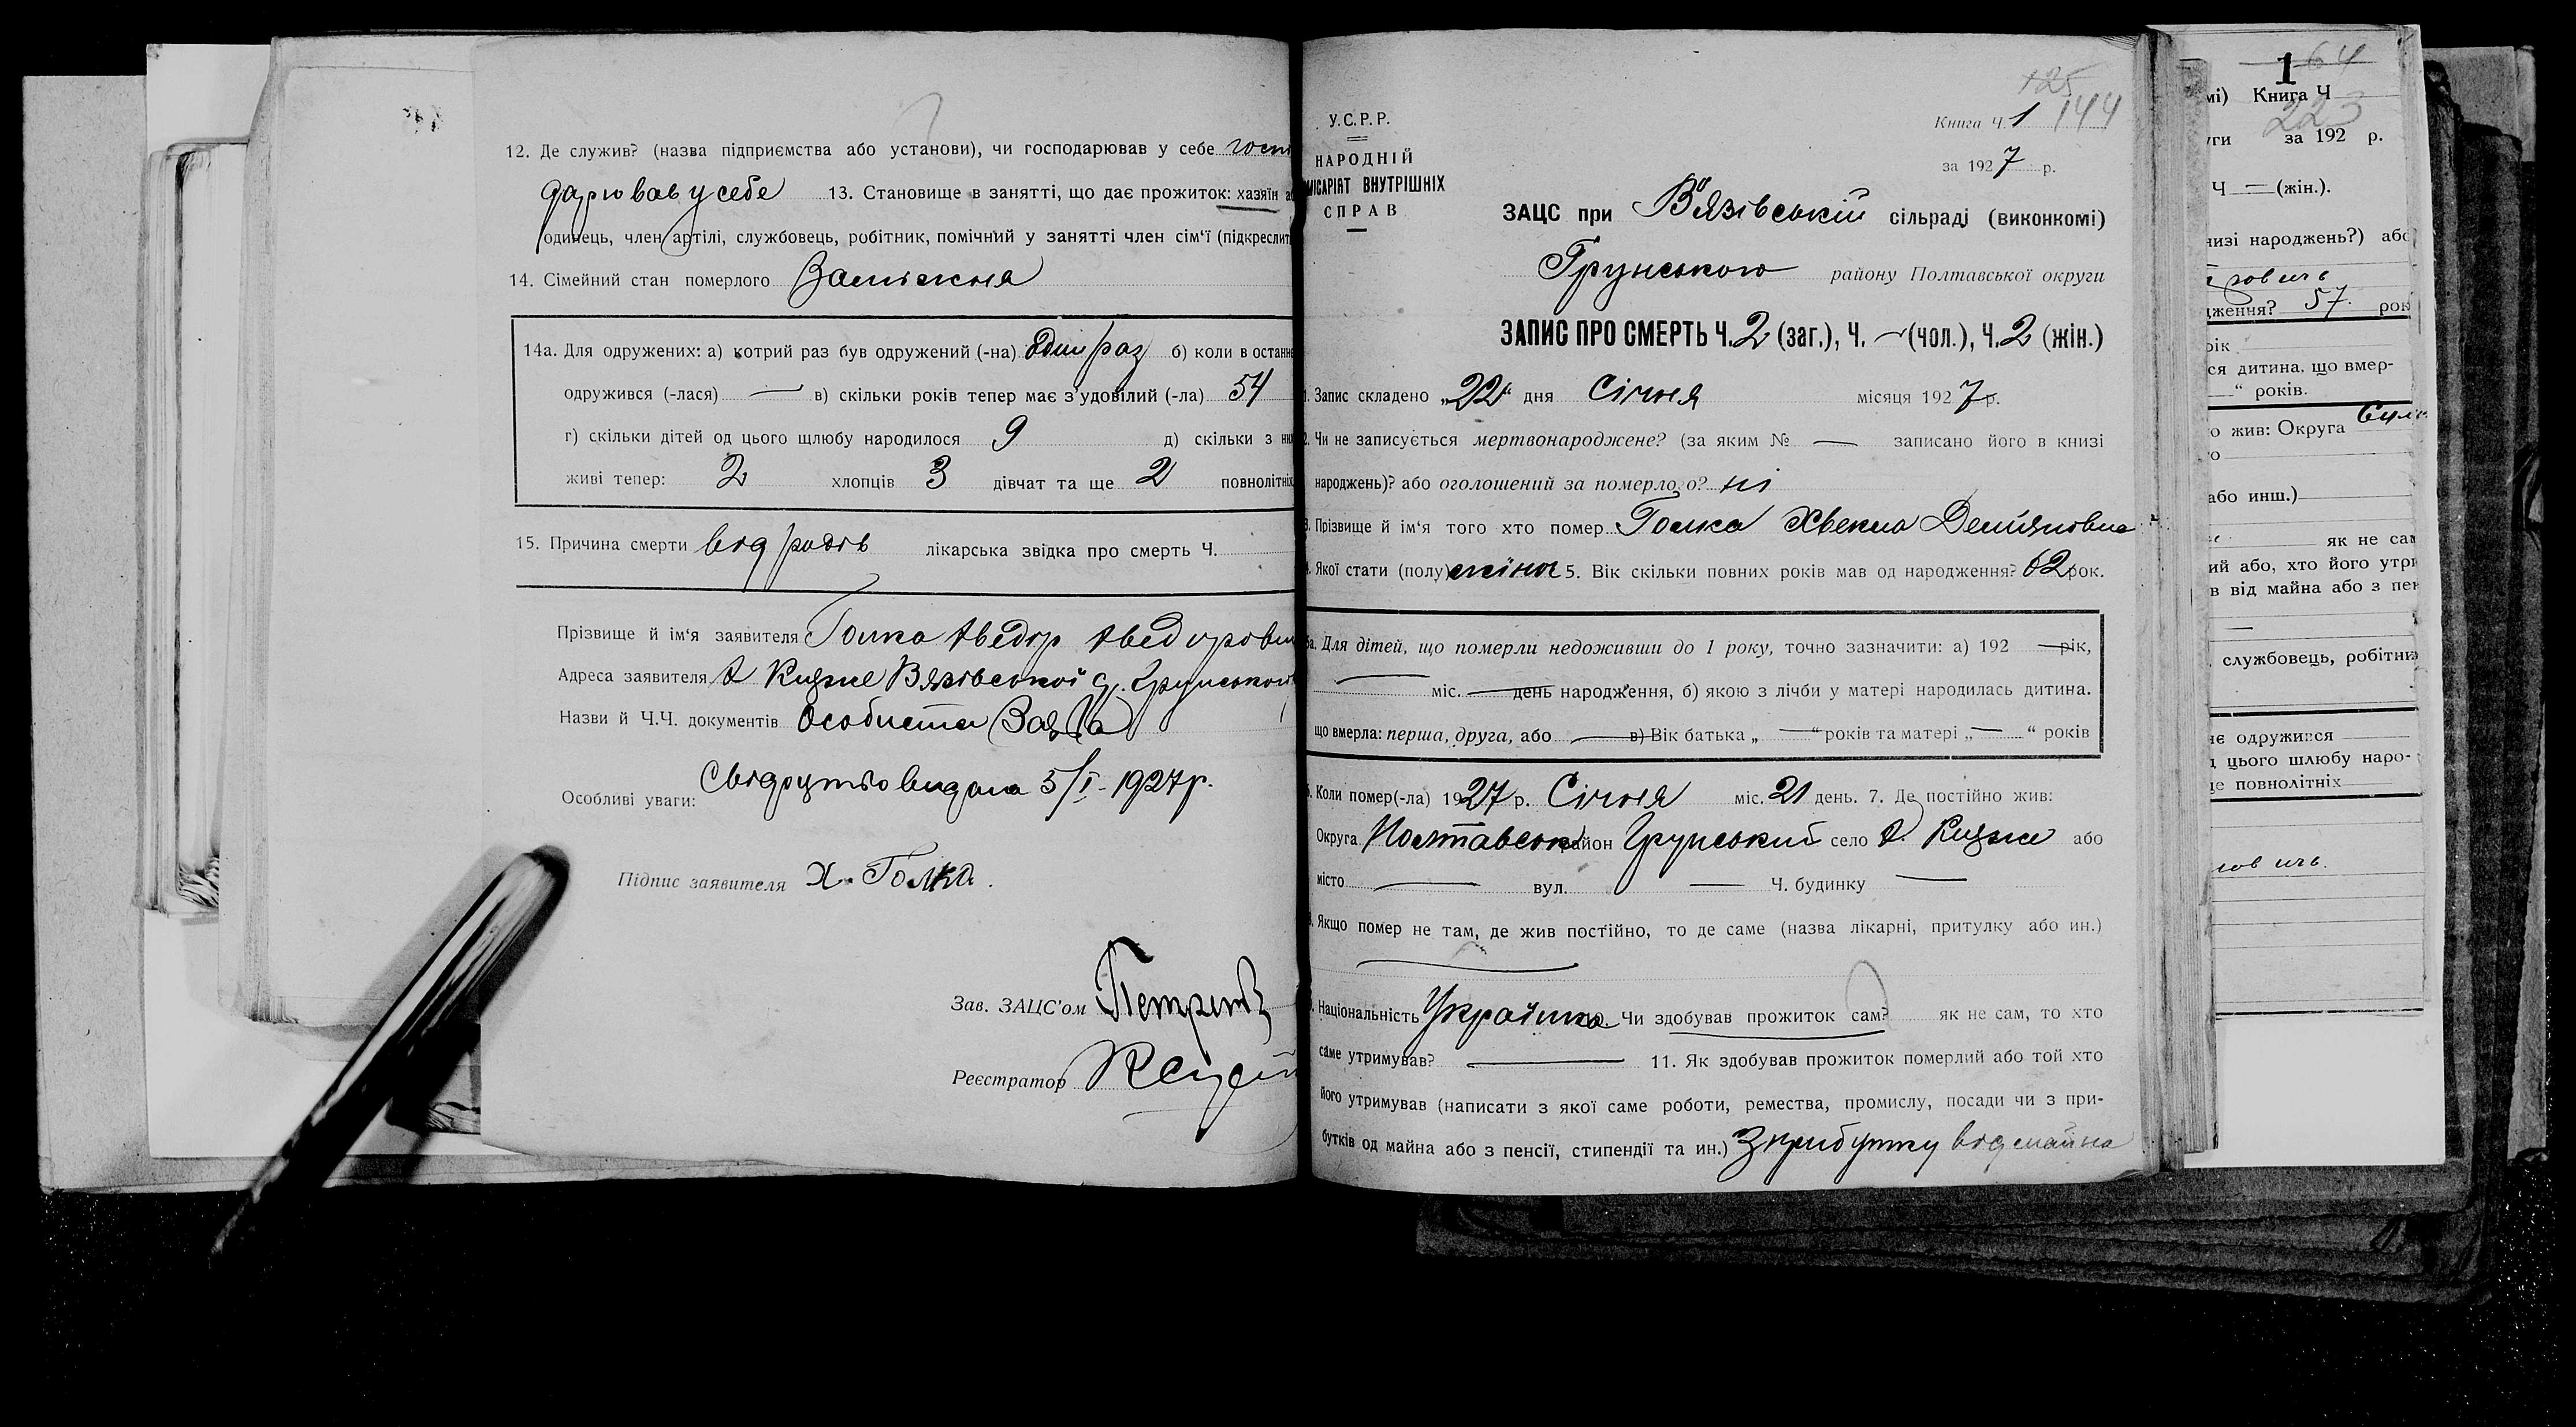 12. Де служив? (назва підприємства або установи), чи господарював у себе госпо
дарював у себе 13. Становище в занятті, що дає прожиток: хазяїн
одинець, член артілі, службовець, робітник, помічний у занятті член сім'ї (підкреслит
14. Сімейний стан померлого Заміжня
14а. Для одружених: а) котрий раз був одружений (-на) один раз б) коли в останн
одружився (-лася) — в) скільки років тепер має з удовілий (-ла) 54
г) скільки дітей од цього щлюбу народилося 9 д) скільки з них
живі тепер: 2 хлопців 3 дівчат та ще 2 повнолітніх
15. Причина смерти від родів лікарська звідка про смерть Ч.
Прізвище й ім'я заявителя Голка
Адреса заявителя Вязівської
Назви й Ч.Ч. документів Особиста
Особливі уваги: видана 5/I-1927р.
Підпис заявителя Х. Голка.
Зав. ЗАЦС'ом
Реєстратор
125
144
У.С.Р.Р.
НАРОДНІЙ
МІСАРІЯТ ВНУТРІШНІХ
СПРАВ
Книга Ч. 1
за 1927 р.
ЗАЦС при В'язівській сільраді (виконкомі)
Грунського району Полтавської округи
ЗАПИС ПРО СМЕРТЬ Ч. 2 (заг.), Ч. — (чол.), Ч. 2 (жін.)
1. Запис складено „22" дня Січня місяця 1927 р.
2. Чи не записується мертвонароджене? (за яким № — записано його в книзі
народжень)? або оголошений за померлого? ні
3. Прізвище й ім'я того хто помер Голка Хвекла Демяновна
4. Якої стати (полу) жіноч 5. Вік скільки повних років мав од народження? 62 рок.
5а. Для дітей, що померли недоживши до 1 року, точно зазначити: а) 192 — рік,
— міс. — день народження, б) якою з лічби у матері народилась дитина.
що вмерла: перша, друга, або — в) Вік батька „ — " років та матері „ — " років
6. Коли помер(-ла) 1927 р. Січня міс. 21 день. 7. Де постійно жив:
Округа Полтавськ район Грунський село або
місто — вул. — Ч. будинку —
8. Якщо помер не там, де жив постійно, то де саме (назва лікарні, притулку або ин.)
—
9. Національність Українка Чи здобував прожиток сам? як не сам, то хто
саме утримував? — 11. Як здобував прожиток померлий або той хто
його утримував (написати з якої саме роботи, ремества, промислу, посади чи з при-
бутків од майна або з пенсії, стипендії та ин.) З прибутку від майна
1 64
мі) Книга Ч
223
уги за 192 р.
Ч — (жін.).
низі народжень?) або
дження? 57 рок
рік
ся дитина, що вмер-
—" років.
о жив: Округа
або инш.)
як не сам
ий або, хто його утри
в від майна або з пен
, службовець, робітни
не одружився
д цього шлюбу наро-
ще повнолітніх